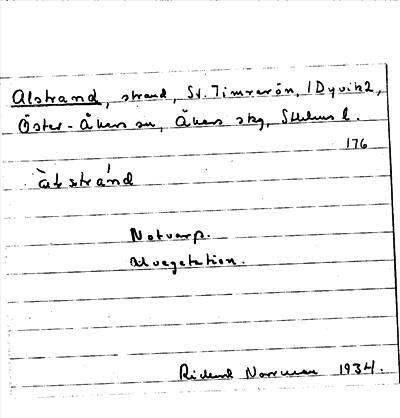 Alstrand, strand, St. Timrarön, 1 Dyvik 2,
Öster-Åkers sn, Åkers skg, Sthlms l.
176
àlstránd
Notvarp.
Alvegetation.
Rickard Norrman 1934.